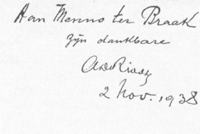 Aan Menno ter Braak
zijn dankbare
2 Nov. 1938